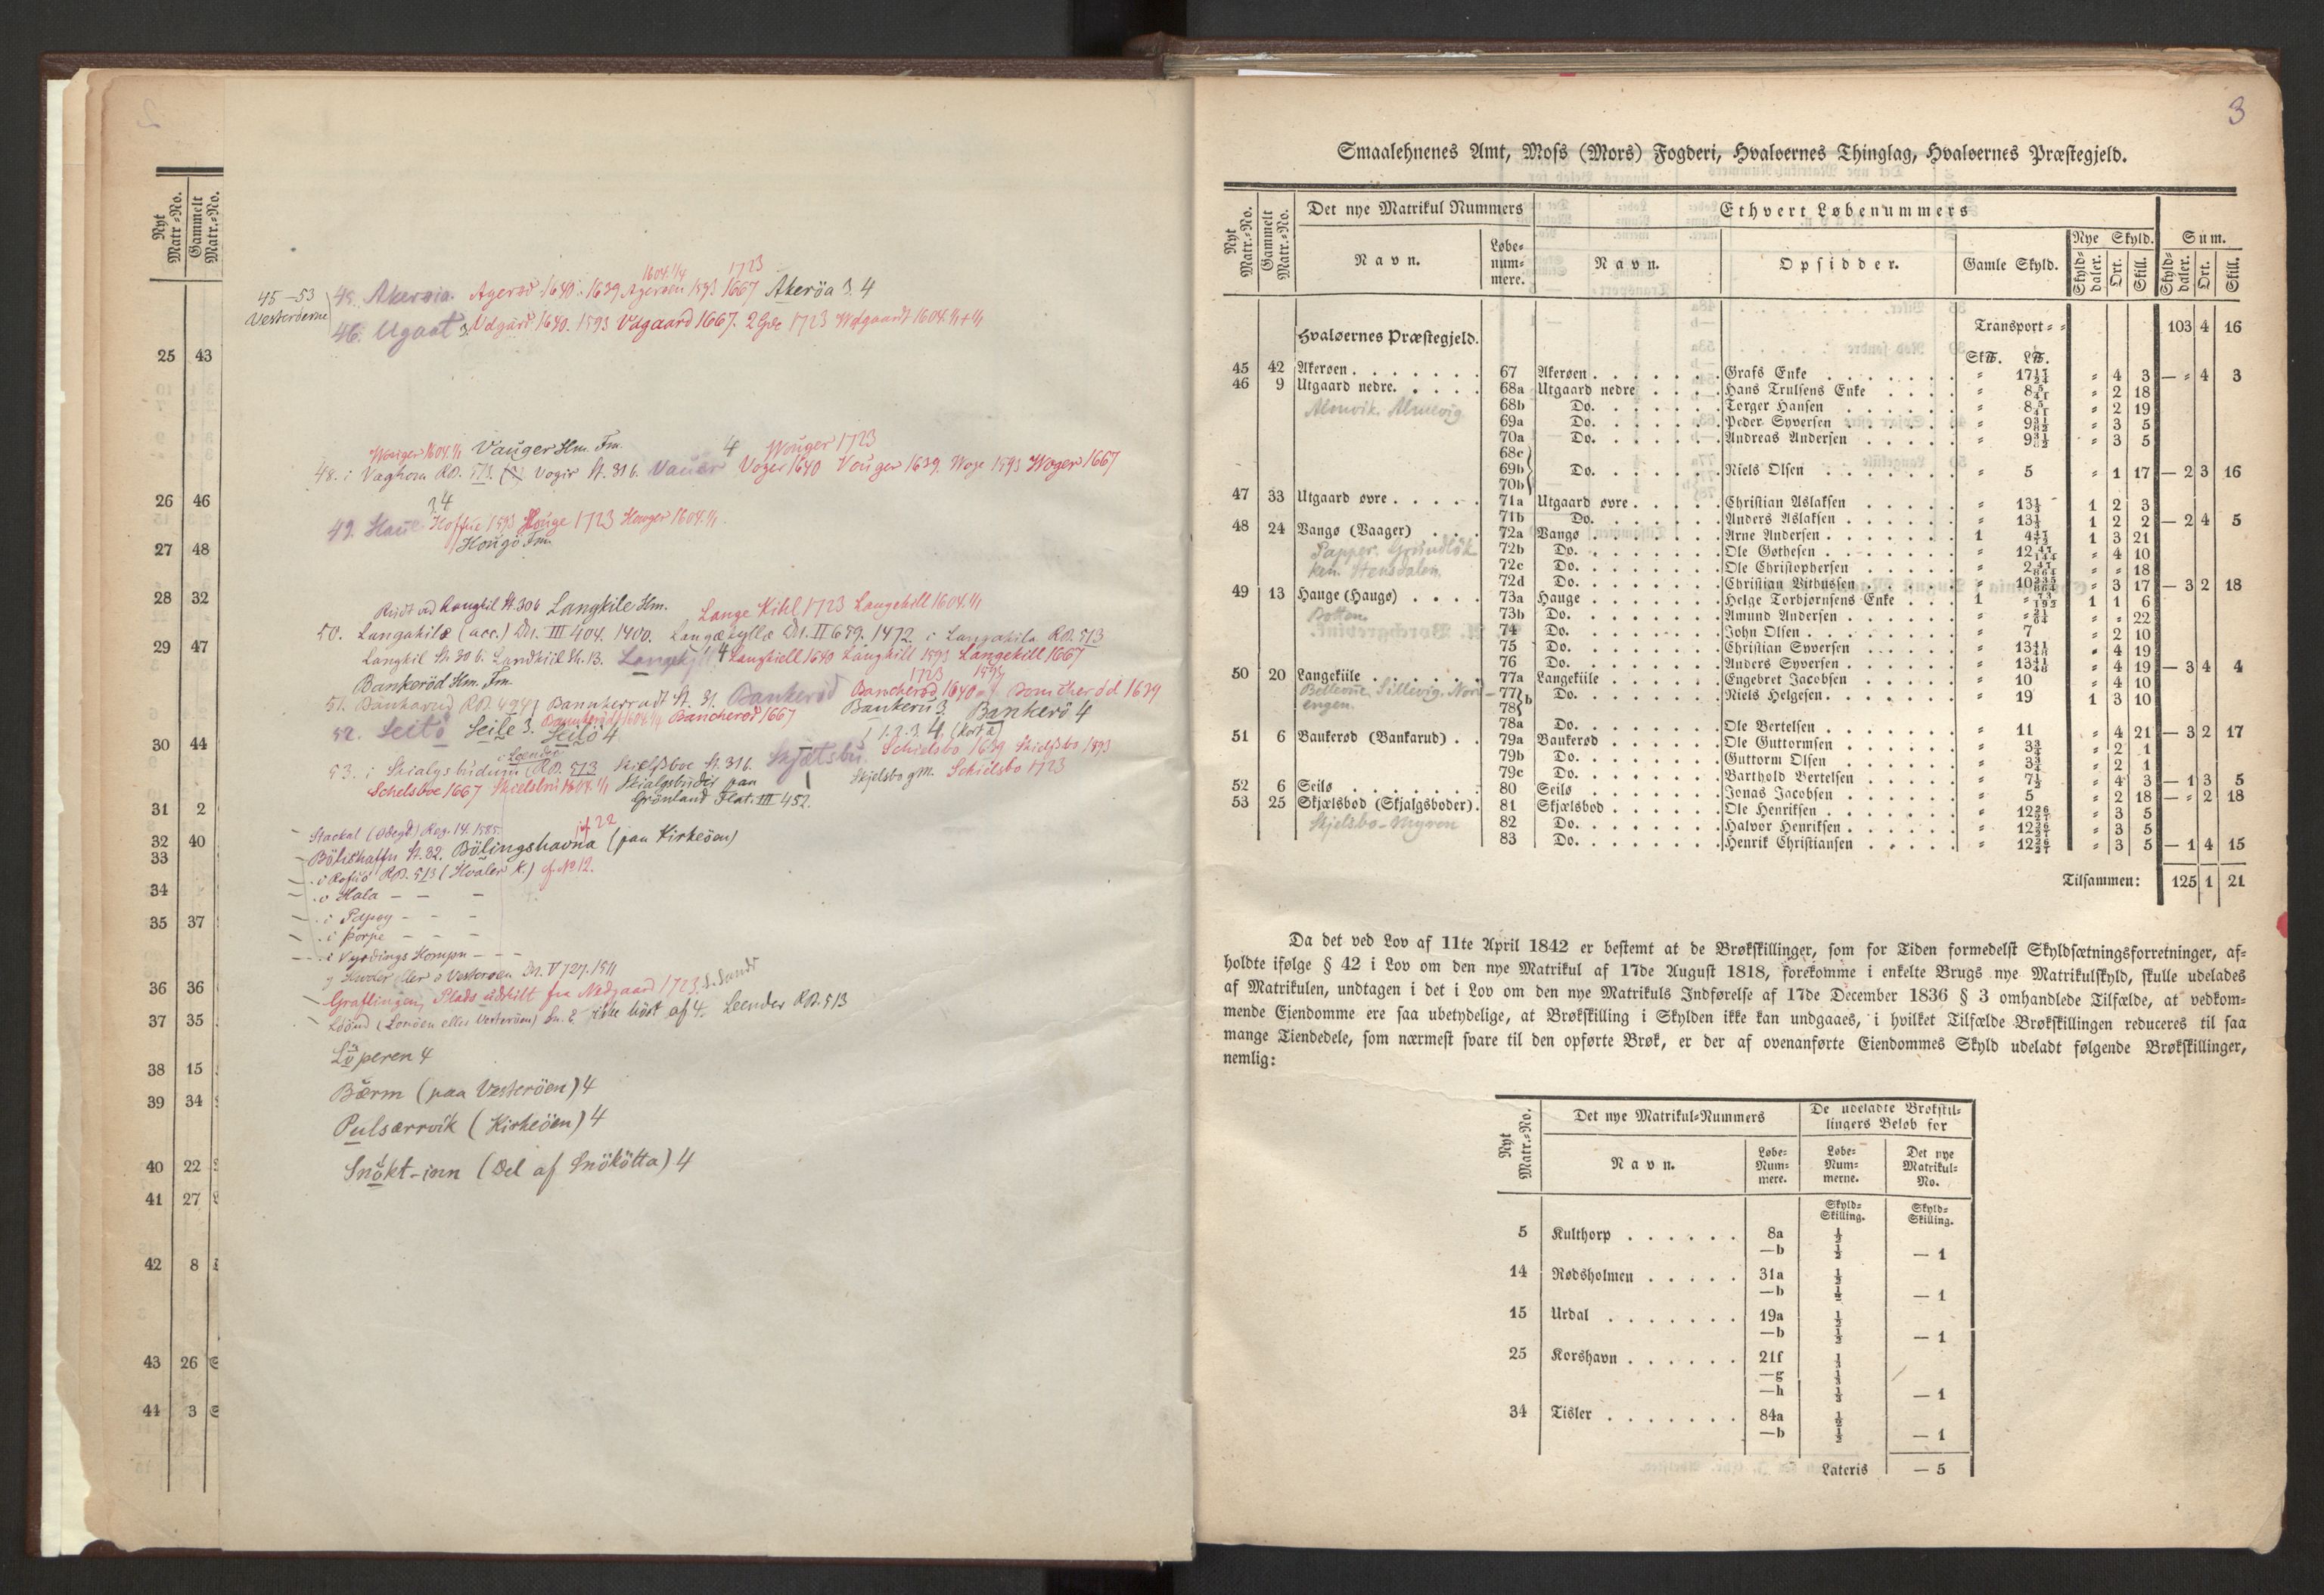 Nyt Matr.-No.
Gammelt Matr.-No.
25 43
26 46
27 48
28 32
29 47
30 44
31 2
32 40
33
34
35 37
36 36
37 35
38 15
39 34
40 22
41 27
42 8
43 26
44 3
1604.1/1 1723
45–53 45. Akerøia. Agerød 1640. 1639 Agerøen 1593 1667 Akeröa 3. 4
Vesterøerne 46. Ugaat 3. Udgård 1640. 1593 Vdgaard 1667. 2 Gde 1723 Wdgaardt 1604.1/1+1/1
Woiger 1604.1/1 Vauger Hm. Fm. 4 Wouger 1723
48. i Vaghom RB. 513. Vogir St. 31b. Vauer Voger 1640 Vouger 1639. Woge 1593 Woger 1667
3. 4
49. Haue Hoffue 1593 Houge 1723 Houger 1604.1/1.
Hougö Fm.
Rudt ved Langkil St. 30b Langkile Hm. Lange Kihl 1723 Langekill 1604.1/1
50. Langakilæ (acc.) DN. III 404. 1400. Langækyllæ DN. II 659. 1472. i Langakila RB. 513
Langkil St. 30 b. Landkiil St. 13. 4 Langkiell 1640 Langkill 1593 Langekill 1667
Bankeröd Hm. Fm. 1723 1593
51. Bankarud RB. 494 Bannkerradt St. 31. Bankeröd Bancheröd 1640 Boncheröd 1639
52. Seilö Seile 3. Seilö 4 Bancheröd 1667 Bankeru 3. Bankerö 4
1. 2. 3. 4. (kort a)
53. i Skialgsbudum RB. 513 Skielsboe St. 31b. Skjætsbu. Schielsbo 1639 Skielsbo 1593
Schelsboe 1667 1604.1/1 Skialgsbudir paa Skjelsbo gm. Schielsbo 1723
Grönland Flat. III 452.
Stackal (Ødegd) Reg. 14. 1585. jf 22
Bölishaffn St. 32. Bölingshavna (paa Kirkeöen)
i Rofuö RB. 513 (Hvaler K.) cf. No 12.
o Hala – – –
i Papøy – – –
i Þorpe – – –
i Vyrdings Hompn – – –
Vesterøen DN. V 727. 1511
Graflingen, Plads udskilt fra Nedgaard 1723. S. Sundt
Löönd (Lonöen eller Vesteröen) ikke hört af 4. Leender RB. 513
Löperen 4
Bærm (paa Vesteröen) 4
Pulsærrvik (Kirkeöen) 4
Snökt-inn (Del af Snökötta) 4
3
Smaalehnenes Amt, Moss (Mors) Fogderi, Hvaløernes Thinglag, Hvaløernes Præstegjeld.
Nyt Matr.-No. Gammelt Matr.-No. Det nye Matrikul Nummers Ethvert Løbenummers
Navn. Løbe-nummere. Navn. Opsidder. Gamle Skyld. Nye Skyld. Sum.
Skyld-daler. Ort. Skill. Skyld-daler. Ort. Skill.
Hvaløernes Præstegjeld. Transport - - 103 4 16
Sk℔. L℔.
45 42 Akerøen . . . 67 Akerøen . . . Grafs Enke . . . " 17 17/24 " 4 3 — " 4 3
46 9 Utgaard nedre. . . 68a Utgaard nedre . . . Hans Trulsens Enke . . . " 8 5/41 " 2 18
Almvik. Almevig 68b Do. . . . Torger Hansen . . . " 8 5/41 " 2 19
69a Do. . . . Peder Syversen . . . " 9 31/82 " 3 5
70a Do. . . . Andreas Andersen . . . " 9 31/82 " 3 5
68c
69b Do. . . . Niels Olsen . . . " 5 " 1 17 — 2 3 16
70b
47 33 Utgaard øvre . . . 71a Utgaard øvre . . . Christian Aslaksen . . . " 13 1/2 1 2 3
71b Do. . . . Anders Aslaksen . . . " 13 1/2 1 2 2 — 2 4 5
48 24 Vangø (Vaager) . . . 72a Vangø . . . Arne Andersen . . . 1 4 47/72 1 3 21
Papper. Grundlök 72b Do. . . . Ole Gothesen . . . " 12 47/144 " 4 10
Stensdalen 72c Do. . . . Ole Christophersen . . . " 2 47/864 " " 18
72d Do. . . . Christian Vithussen . . . " 10 235/864 " 3 17 — 3 2 18
49 13 Hauge (Haugø) . . . 73a Hauge . . . Helge Torbjørnsens Enke . . . 1 " 73/192 1 1 6
Botten. 73b Do. . . . Amund Andersen . . . " " 21/64 " " 22
74 Do. . . . John Olsen . . . " 7 " 2 10
75 Do. . . . Christian Syversen . . . " 13 41/48 " 4 19
76 Do. . . . Anders Syversen . . . " 13 41/48 " 4 19 — 3 4 4
50 20 Langekiile . . . 77a Langekiile . . . Engebret Jacobsen . . . " 10 " 4 10
Bellevue. Sillevig. Nord- 77 } b Do. . . . Niels Helgesen . . . " 19 1 3 10
engen. 78
78a Do. . . . Ole Bertelsen . . . " 11 " 4 21 — 3 2 17
51 6 Bankerød (Bankarud) . . 79a Bankerød . . . Ole Guttormsen . . . " 3 3/4 " 2 1
79b Do. . . . Guttorm Olsen . . . " 3 3/4 " 2 1
79c Do. . . . Barthold Bertelsen . . . " 7 1/2 " 4 3 — 1 3 5
52 6 Seilø . . . 80 Seilø . . . Jonas Jacobsen . . . " 5 " 2 18 — " 2 18
53 25 Skjælsbod (Skjalgsboder). 81 Skjælsbod . . . Ole Henriksen . . . " 12 26/27 " 3 5
Skjelsbo-Myren 82 Do. . . . Halvor Henriksen . . . " 12 26/27 " 3 5
83 Do. . . . Henrik Christiansen . . . " 12 26/27 " 3 5 — 1 4 15
Tilsammen: 125 1 21
Da det ved Lov af 11te April 1842 er bestemt at de Brøkskillinger, som for Tiden formedelst Skyldsætningsforretninger, af-
holdte ifølge § 42 i Lov om den nye Matrikul af 17de August 1818, forekomme i enkelte Brugs nye Matrikulskyld, skulle udelades
af Matrikulen, undtagen i det i Lov om den nye Matrikuls Indførelse af 17de December 1836 § 3 omhandlede Tilfælde, at vedkom-
mende Eiendomme ere saa ubetydelige, at Brøkskilling i Skylden ikke kan undgaaes, i hvilket Tilfælde Brøkskillingen reduceres til saa
mange Tiendedele, som nærmest svare til den opførte Brøk, er der af ovenanførte Eiendommes Skyld udeladt følgende Brøkskillinger,
nemlig:
Nyt Matr.-No. Det nye Matrikul-Nummers De udeladte Brøkskil-lingers Beløb for
Navn. Løbe-Num-mere. Løbe-Num-merne. Det nye Matrikul-No.
Skyld-Skilling. Skyld-Skilling.
5 Kulthorp . . . 8a 1/2
—b 1/2 — 1
14 Rødsholmen . . . 31a 1/2
—b 1/2 — 1
15 Urdal . . . 19a 1/2
—b 1/2 — 1
25 Korshavn . . . 21f 1/3
—g 1/3
—h 1/3 — 1
34 Tisler . . . 84a 1/2
—b 1/2 — 1
Lateris — 5